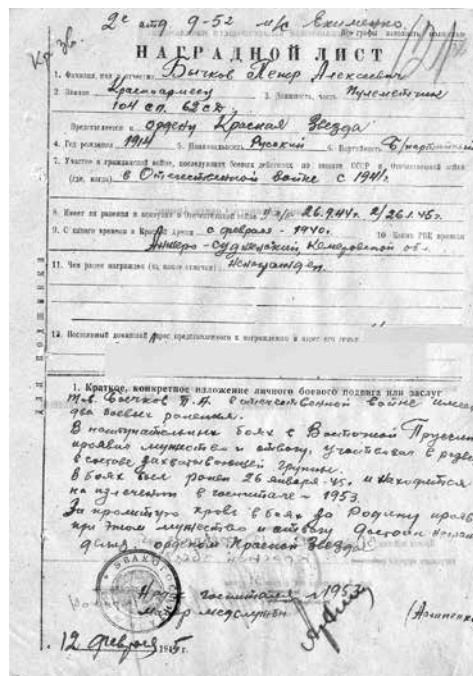 2е отд 9-52 м/с Екименко
Кр Зв.
НАГРАДНОЙ ЛИСТ
1. Фамилия, имя и отчество Бычков Петр Алексеевич
2. Звание Красноармеец 3. Должность, часть Пулеметчик
104 сп. 62 сд.
Представляется к ордену Красная Звезда
4. Год рождения 1914 5. Национальность Русский 6. Партийность Б/партийный
7. Участие в гражданской войне, последующих боевых действиях по защите СССР и Отечественной войне
(где, когда) в Отечественной войне с 1941г.
8. Имеет ли ранения и контузии в Отечественной войне 26.9.44г. 2/26.1.45г.
9. С какого времени в Красной Армии с февраля - 1940г. 10. Каким РВК призван
Анжеро-Судженский, Кемеровской обл.
11. Чем ранее награжден (за какие отличия) Ненагражден.
12. Постоянный домашний адрес представляемого к награждению и адрес его семьи
1. Краткое, конкретное изложение личного боевого подвига или заслуг
Тов. Бычков П.А. в отечественной войне имеет
два боевых ранения.
В наступательных боях в Восточной Пруссии
проявил мужество и отвагу, участвовал в
в составе захватывающей группы.
В боях был ранен 26 января 45г. и находится
на излечении в госпитале - 1953.
За пролитую кровь в боях за Родину
при этом мужество и отвагу достоин
орденом Красной Звезда
госпиталя №1953
майор медслужбы
12 февраля 1945 г.